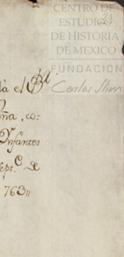 CENTRO DE
ESTUDIOS
DE HISTORIA
DE MEXICO
FUNDACIÓN
Carlos Slim
ña, co-
Infantes
Sept.e D
763